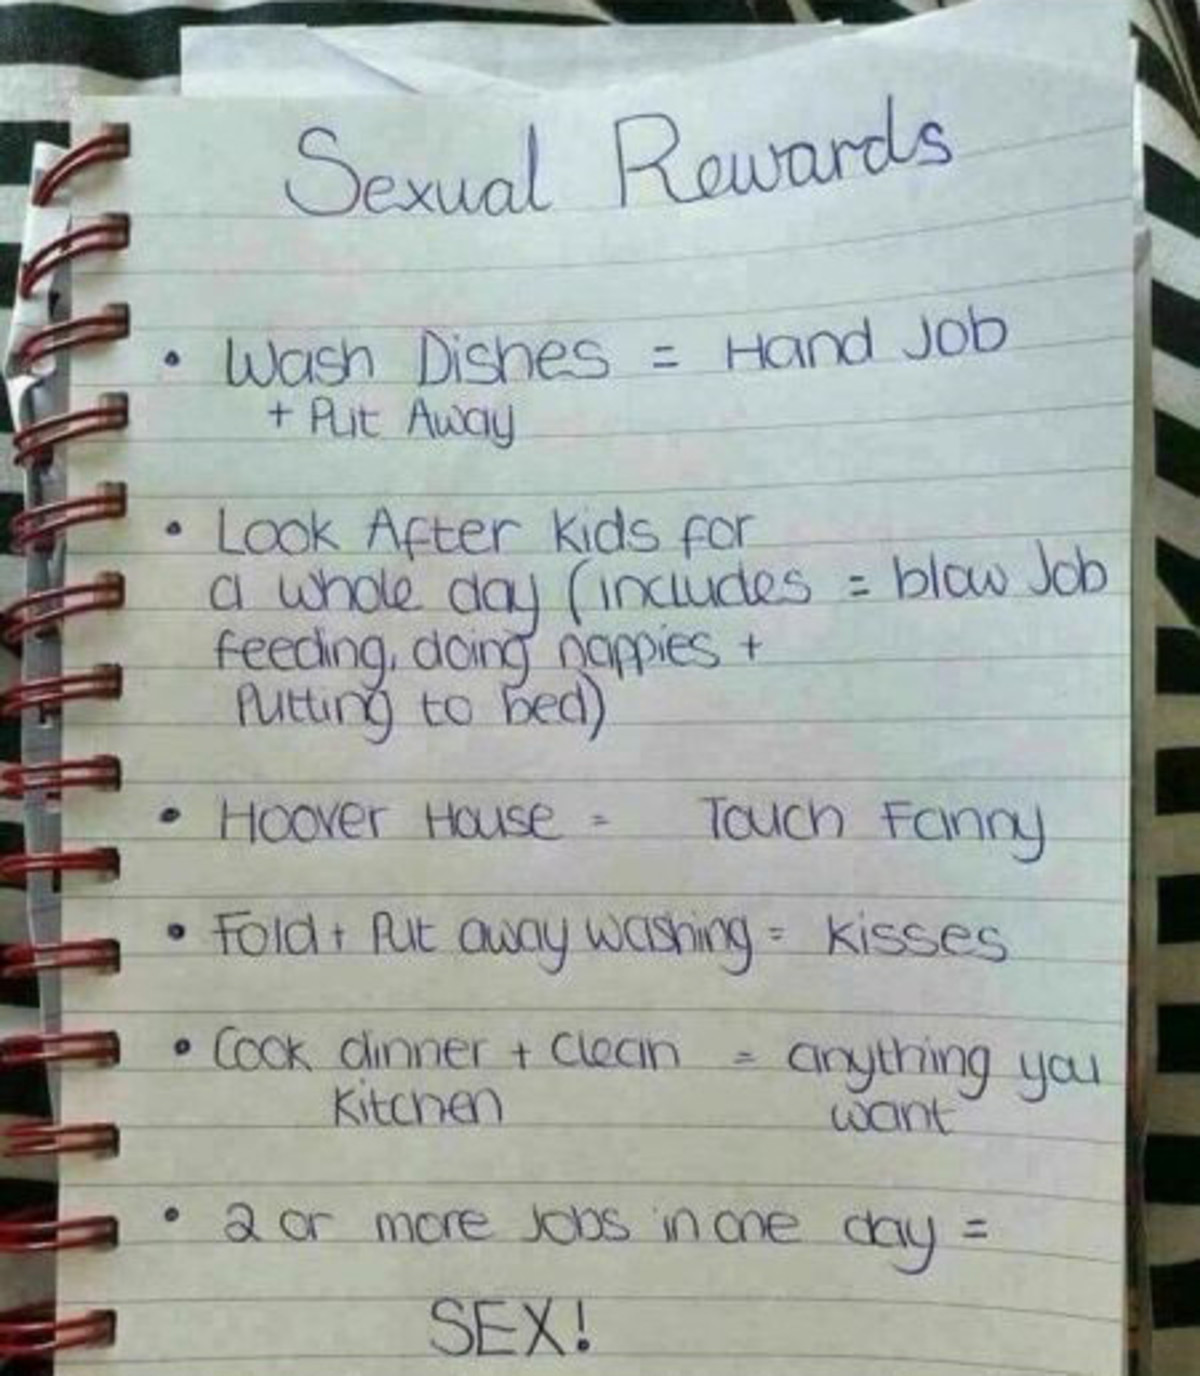 Sexual Rewards
• Wash Dishes = Hand Job
+ Put Away
• Look After kids for
a whole day (includes = blow Job
feeding, doing nappies +
Putting to bed)
• Hoover House = Touch Fanny
• Fold + Put away washing = kisses
• Cook dinner + Clean = anything you
Kitchen want
• 2 or more Jobs in one day =
SEX!